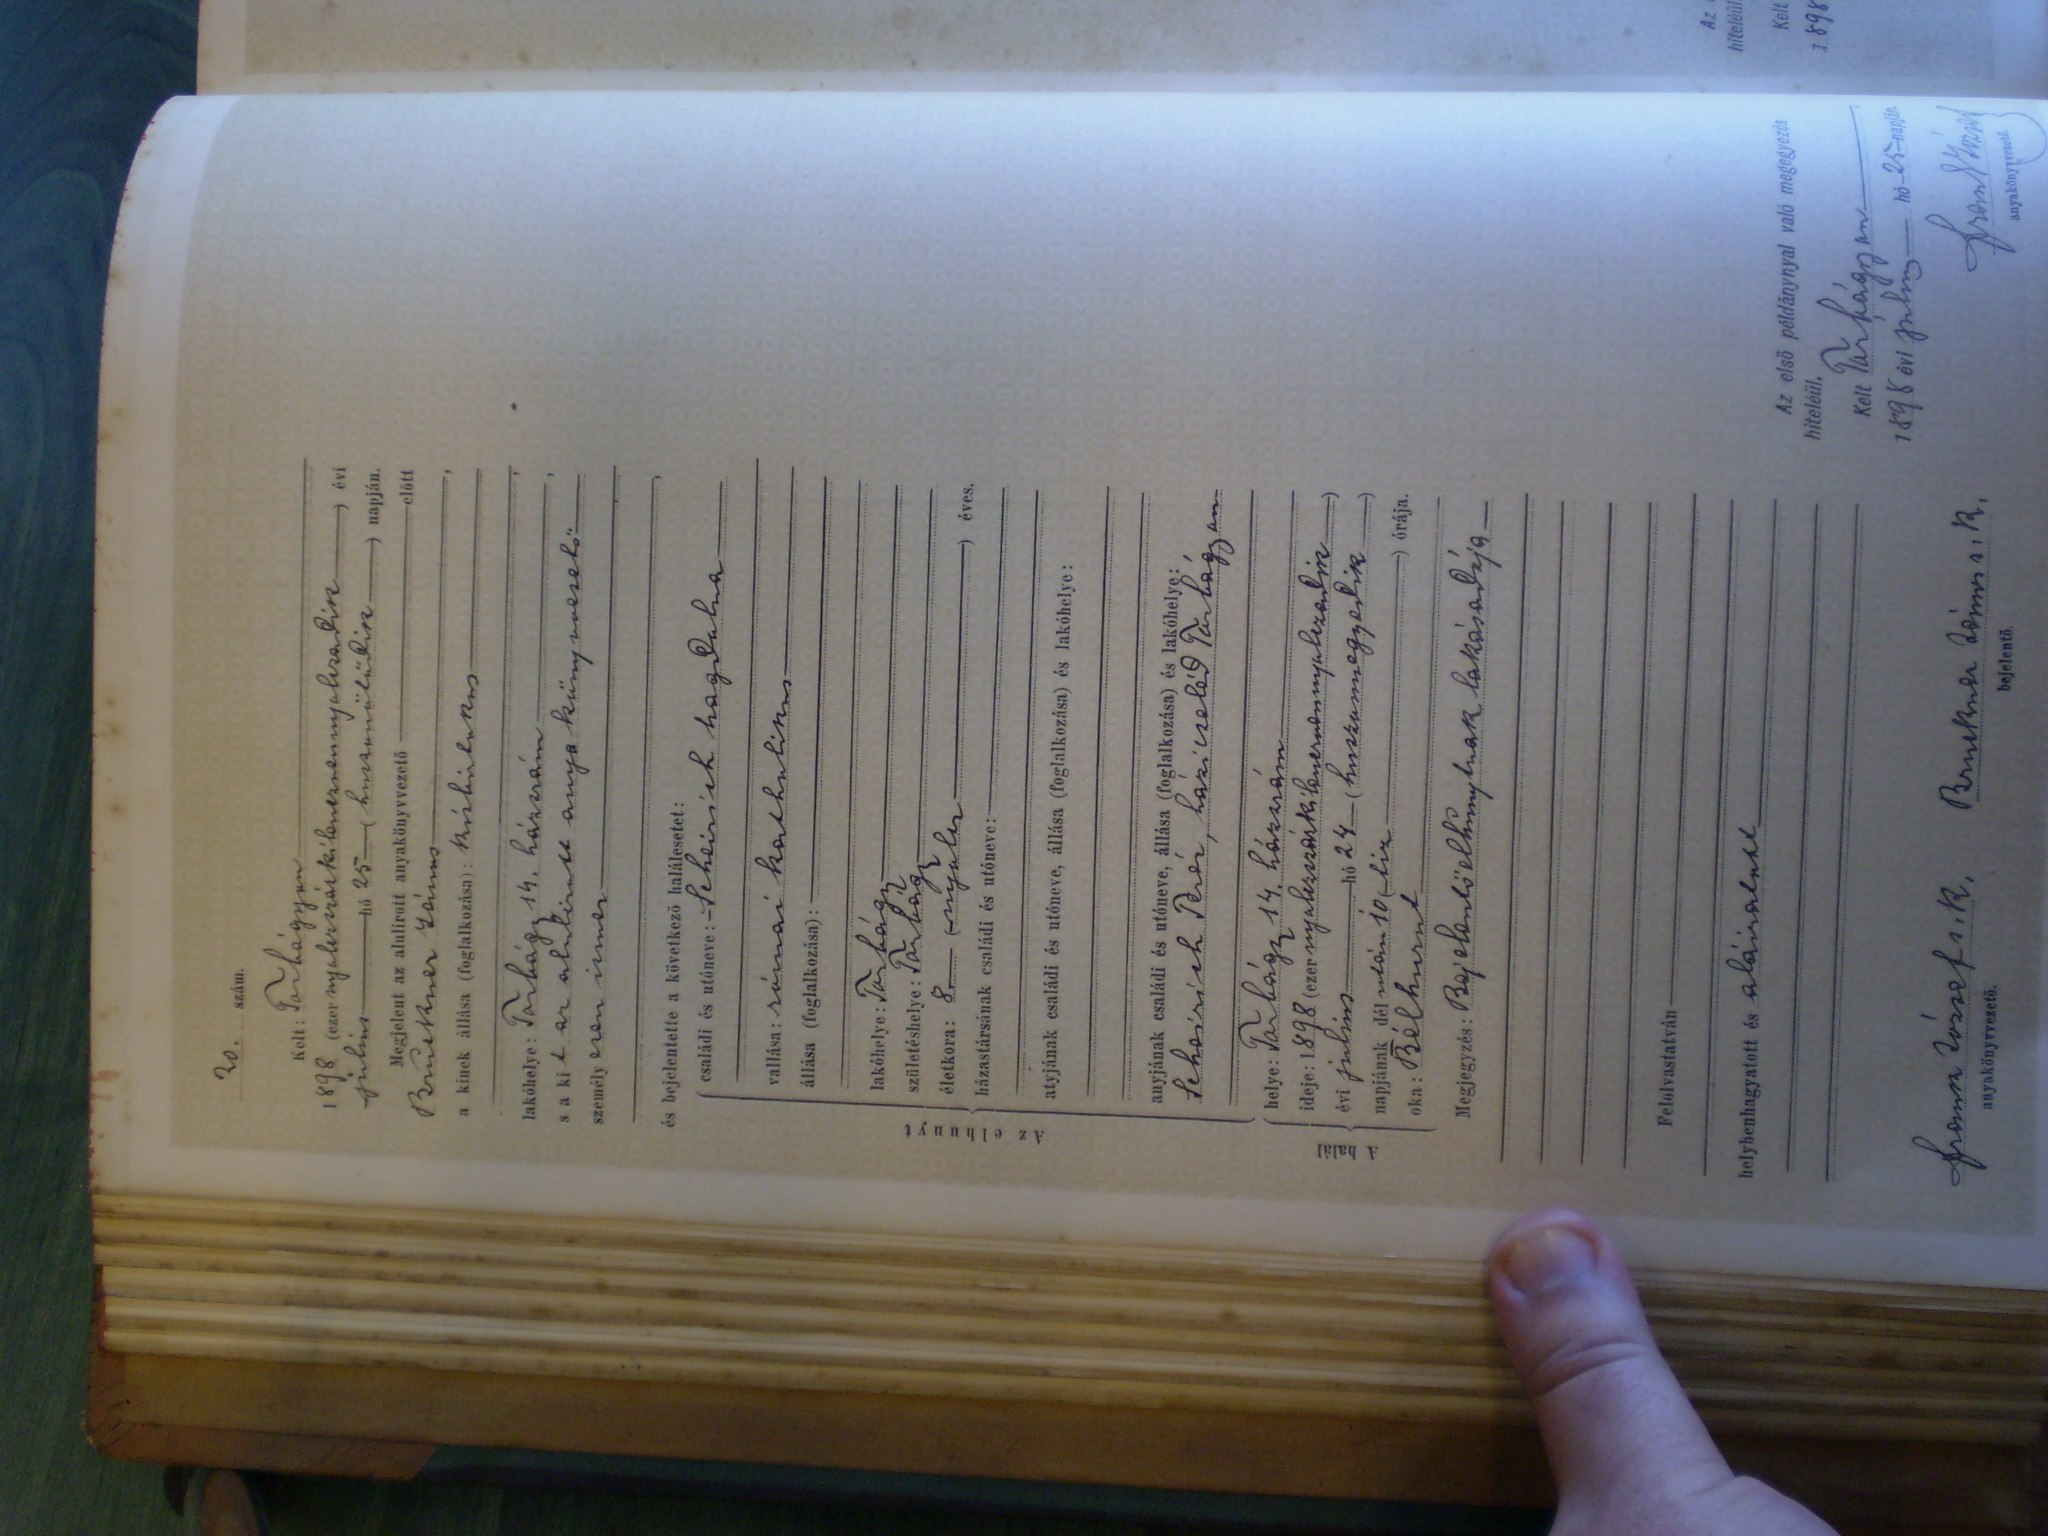 20. szám.
Kelt: Torbágyon
1898 (ezernyolczszázkilenczvennyolczadik) évi
julius hó 25 (huszonötödik) napján.
Megjelent az alulirott anyakönyvvezető előtt
Brukner János,
a kinek állása (foglalkozása):
lakóhelye: Torbágy 14. házszám,
s a ki t az alulirott anyakönyvvezető
személyesen ismer,
és bejelentette a következő halálesetet:
Az elhunyt
családi és utóneve: Scheirich Magdolna
vallása: római katholikus
állása (foglalkozása):
lakóhelye: Torbágy
születéshelye: Torbágy
életkora: 8 (nyolcz) éves.
házastársának családi és utóneve:
atyjának családi és utóneve, állása (foglalkozása) és lakóhelye:
anyjának családi és utóneve, állása (foglalkozása) és lakóhelye:
Scheirich Teréz, házicseléd Torbágyon
A halál
helye: Torbágy 14. házszám
ideje: 1898 (ezernyolczszázkilenczvennyolczadik)
évi julius hó 24 (huszonnegyedik)
napjának dél után 10 (tiz) órája.
oka: Bélhurut
Megjegyzés: Bejelentő elhunytnak lakásadója
Felolvastatván
helybenhagyatott és aláiratott
Frann József s. k.
anyakönyvvezető.
Brukner János s. k.
bejelentő.
Az első példánynyal való megegyezés
hiteléül.
Kelt Torbágyon
1898 évi julius hó 25 napján
Frann József
anyakönyvvezető.
Az
hiteléül.
Kelt
1898